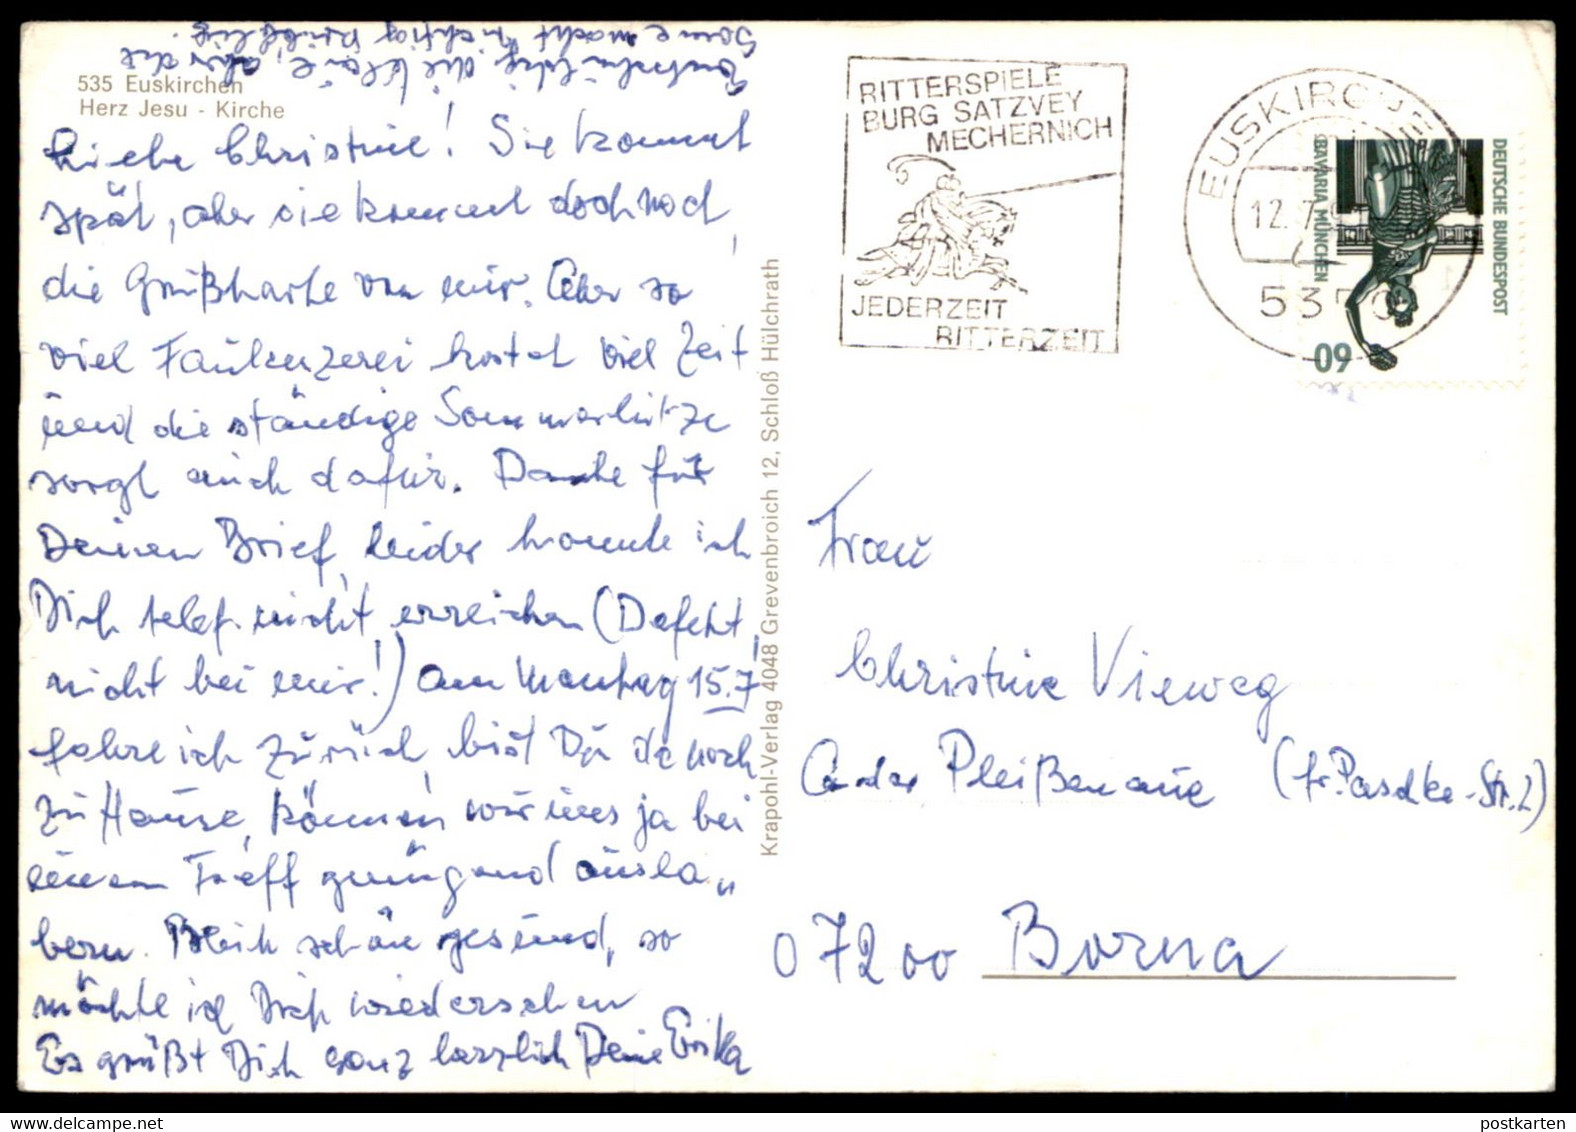 535 Euskirchen
Herz Jesu - Kirche
Liebe Christine! Sie kommt
spät, aber sie kommt doch noch,
die Grußkarte von mir. Aber so
viel Faulenzerei kostet viel Zeit
und die ständige Sommerhitze
sorgt auch dafür. Danke für
Deinen Brief, leider konnte ich
Dich telef. nicht erreichen (Defekt,
nicht bei mir!) Am Montag 15.7
fahre ich zurück, bist Du da noch
zu Hause, können wir uns ja bei
einem Treff genügend ausla„
bern. Bleib schön gesund, so
möchte ich Dich wiedersehen
Es grüßt Dich ganz herzlich Deine Erika
Entschuldige die Klaue, aber die
Sonne macht richtig
Krapohl-Verlag 4048 Grevenbroich 12, Schloß Hülchrath
RITTERSPIELE
BURG SATZVEY
MECHERNICH
JEDERZEIT
RITTERZEIT
EUSKIRCHEN
12.7.
5350
DEUTSCHE BUNDESPOST
BAVARIA MÜNCHEN
60
Frau
Christine Vieweg
An der Pleißenaue (fr. Paschke-Str. 2)
07200 Borna
postkarten